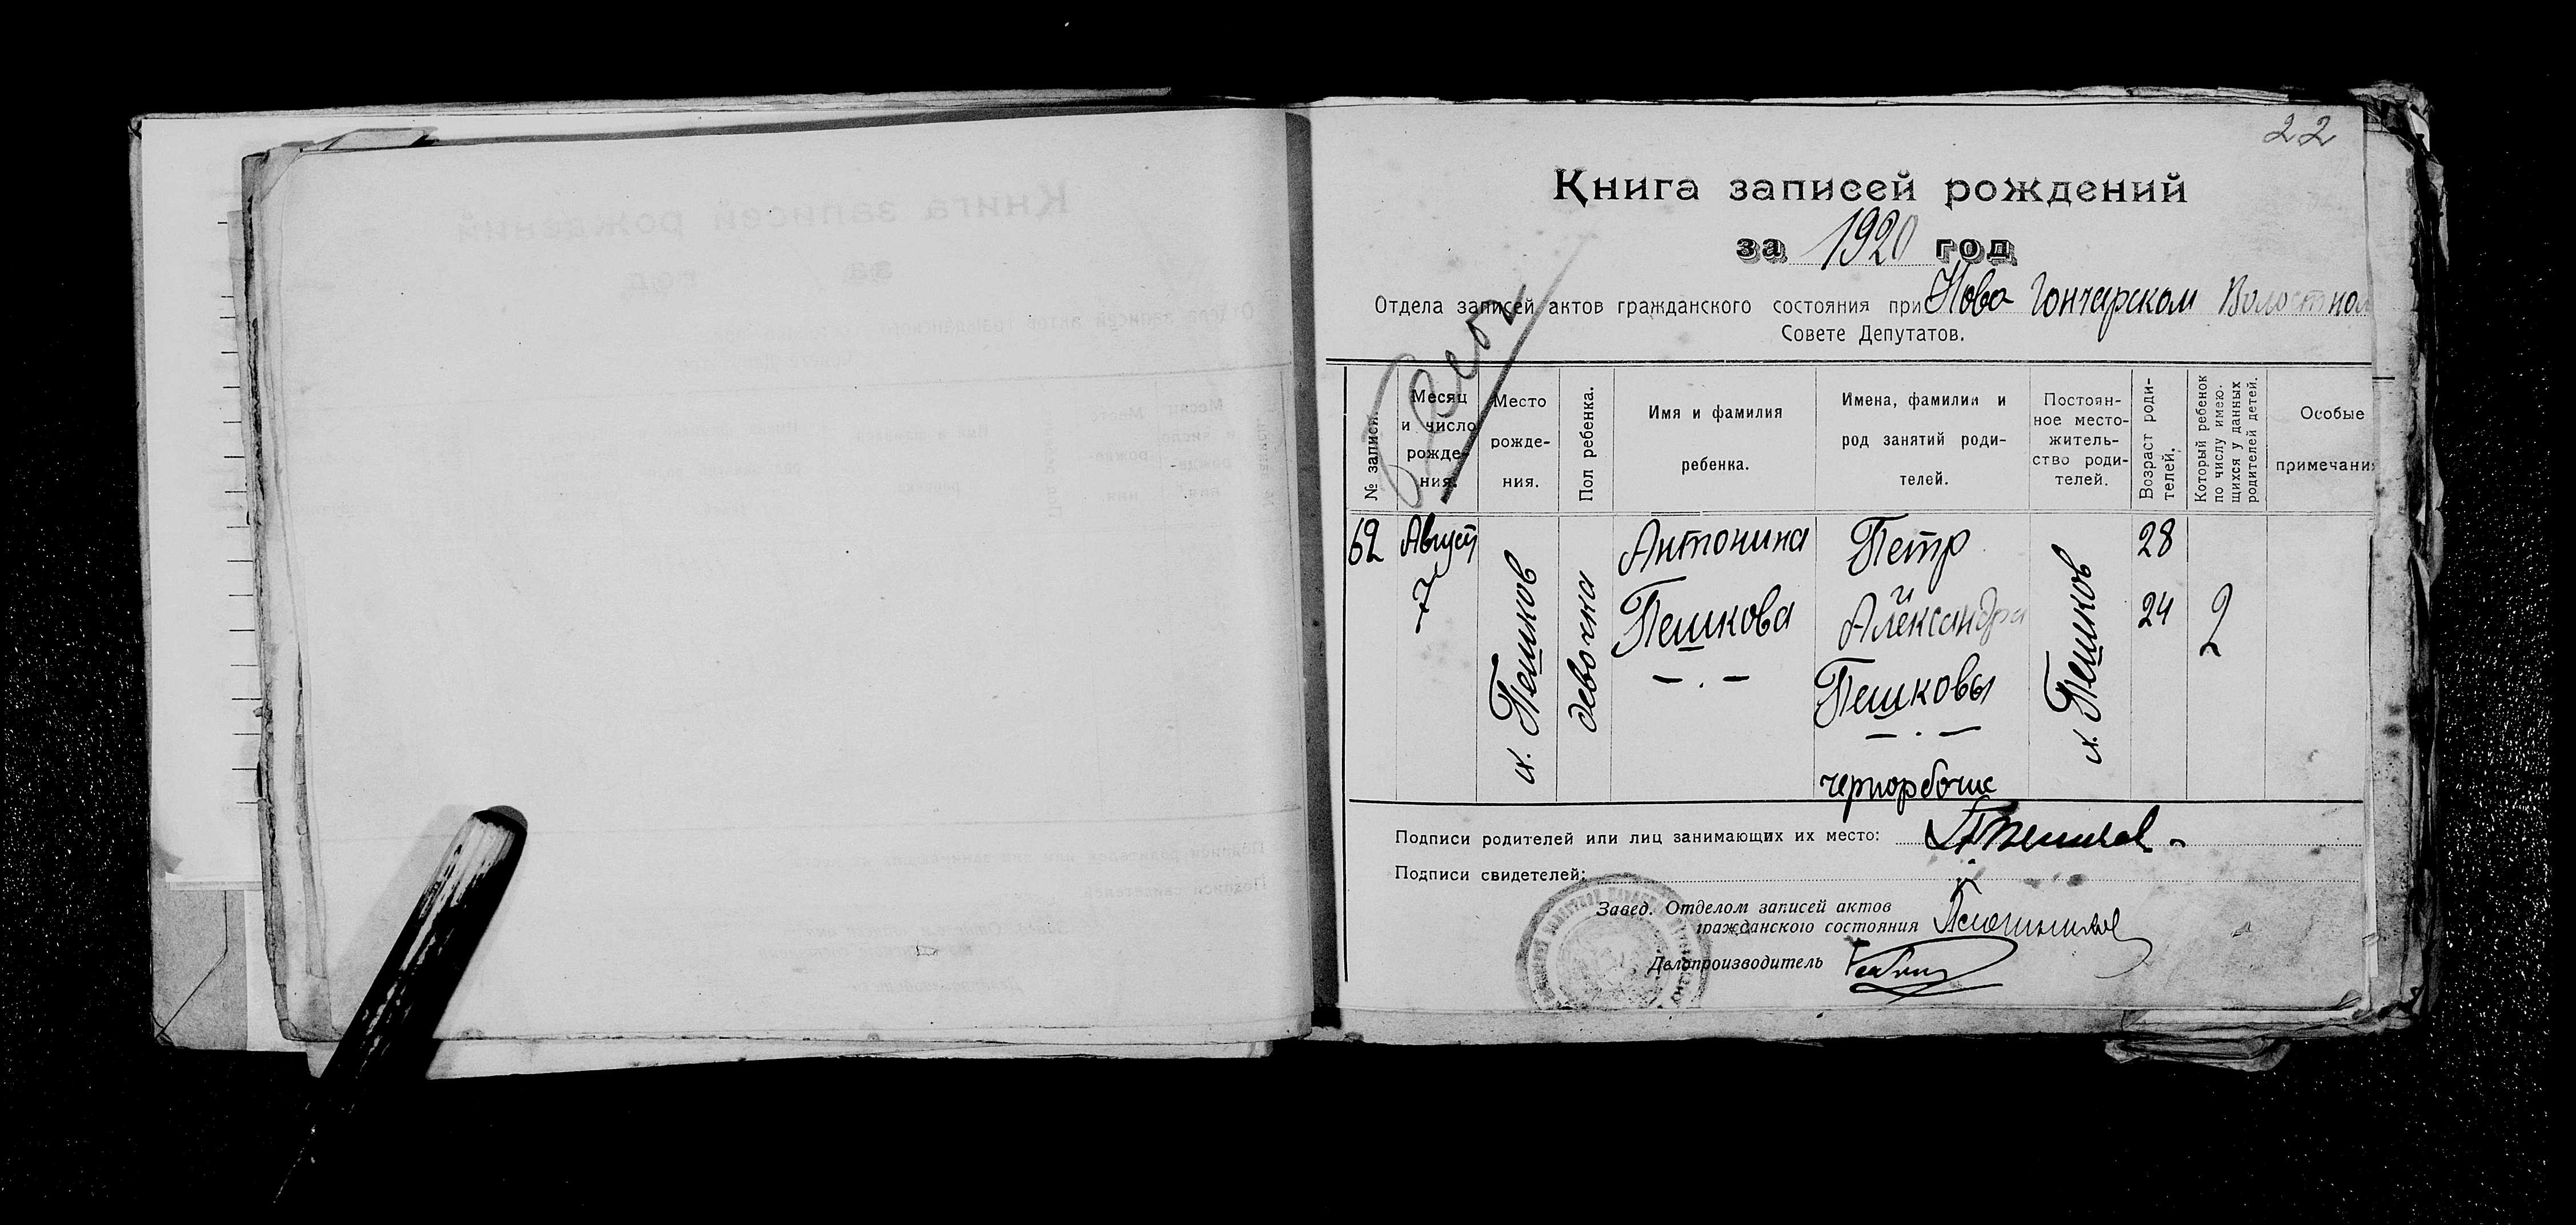 22
Книга записей рождений
за 1920 год
Отдела записей актов гражданского состояния при Ново Гончарском Волостном
Совете Депутатов.
№ записи.
Месяц и число рожде-ния.
Место рожде-ния.
Пол ребенка.
Имя и фамилия ребенка.
Имена, фамилии и род занятий роди-телей.
Постоян-ное место-житель-ство роди-телей.
Возраст роди-телей.
Который ребенок по числу имею-щихся у данных родителей детей.
Особые примечания
62
Август
7
х. Пешков
девочка
Антонина
Пешкова
Петр
и
Александра
Пешковы
чернорбочие
х. Пешков
28
24
2
Подписи родителей или лиц занимающих их место: Пешков
Подписи свидетелей:
Завед. Отделом записей актов
гражданского состояния
Делопроизводитель